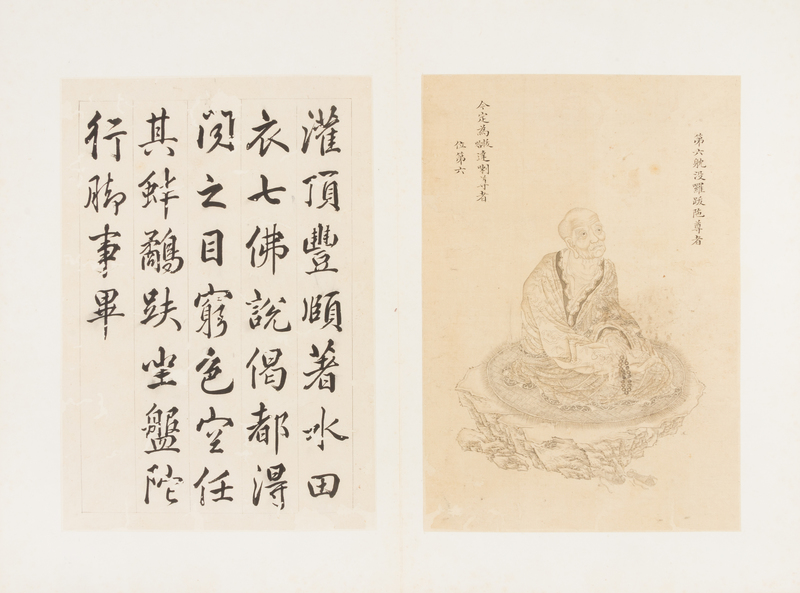 第六躭沒囉跋陁尊者
今定為拔哈達喇尊者
位第六
灌頂豐頤著水田
衣七佛說偈都得
聞之目窮色空任
其蚌鷸趺坐盤陀
行脚事畢